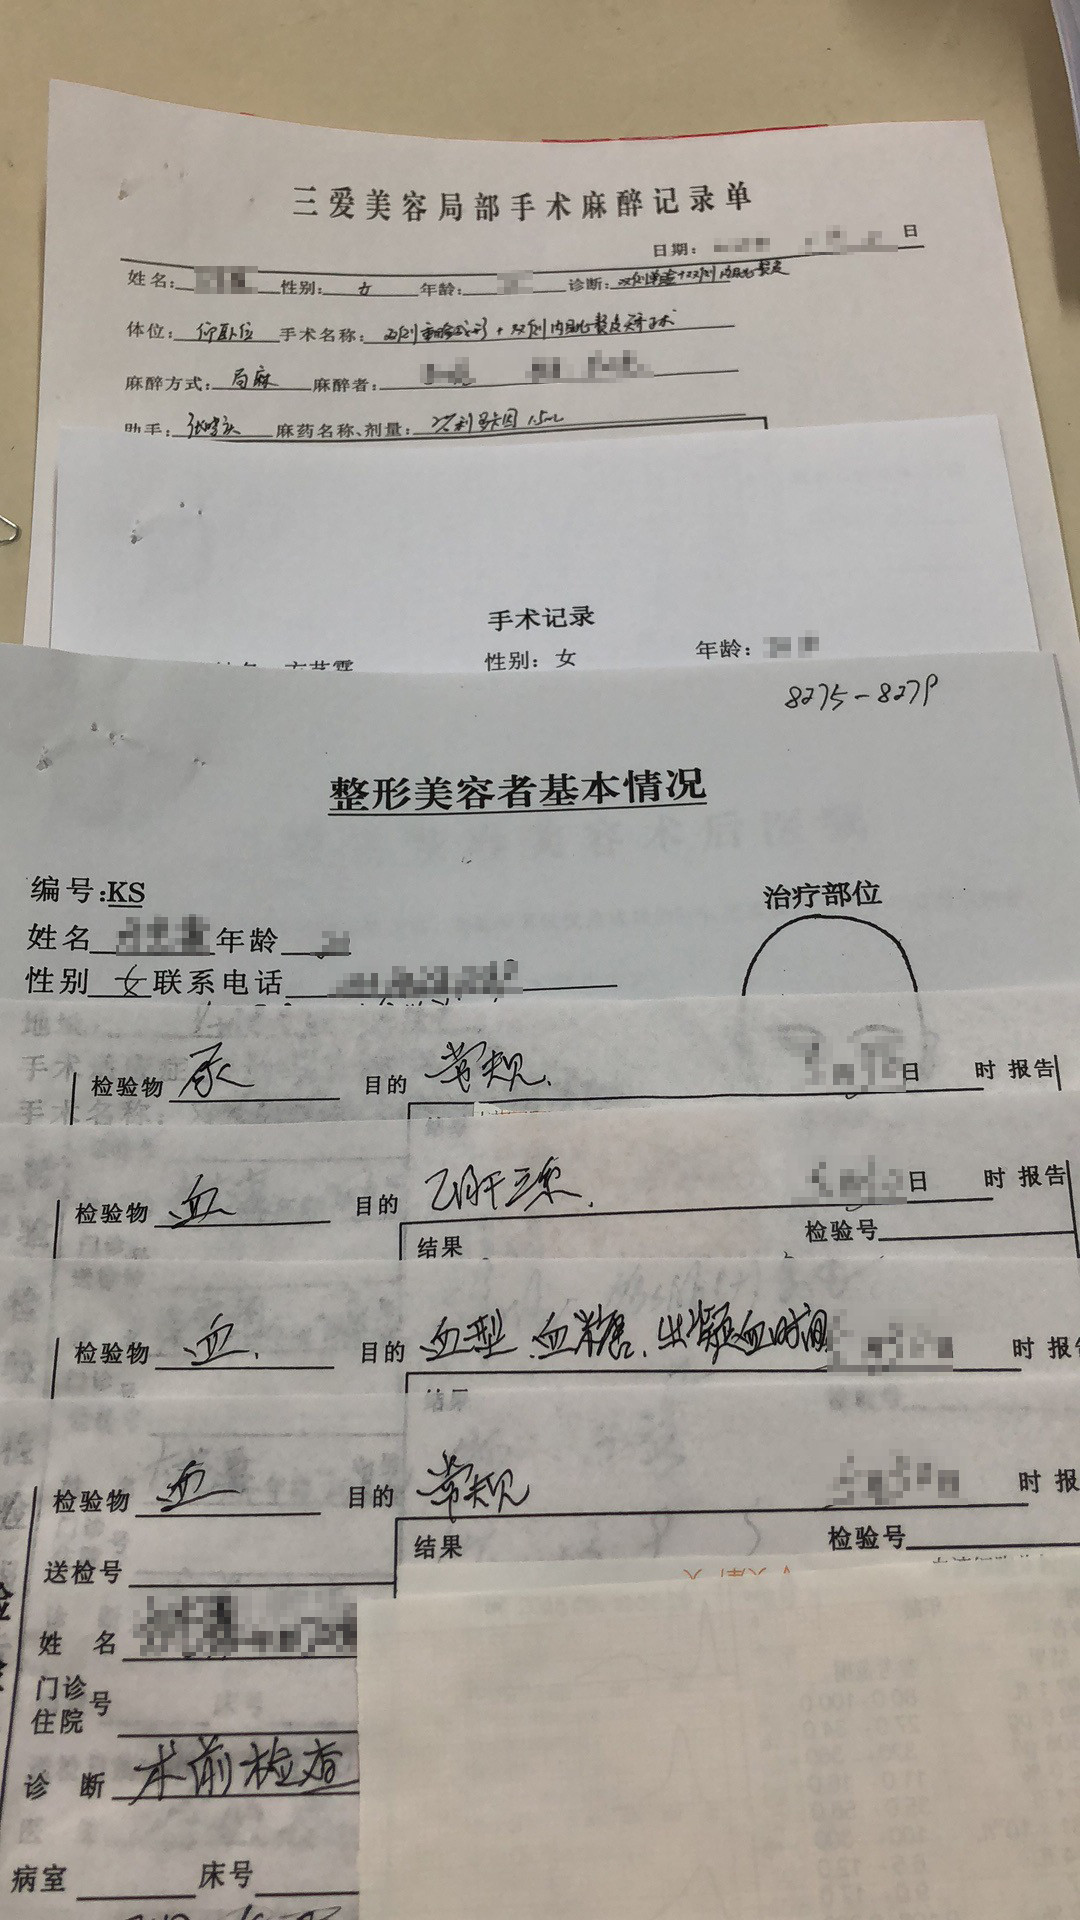 三爱美容局部手术麻醉记录单
日期: 日
姓名: 性别: 女 年龄: 诊断: 双侧单睑+双侧内眦赘皮
体位: 仰卧位 手术名称: 双侧重睑成形+双侧内眦赘皮矫正术
麻醉方式: 局麻 麻醉者:
助手: 麻药名称、剂量: 2%利多卡因 1.5ml
手术记录
性别: 女 年龄:
8275-8279
整形美容者基本情况
编号:KS
治疗部位
姓名 年龄
性别 女 联系电话
检验物 尿 目的 常规. 日 时 报告
检验物 血 目的 乙肝三系. 日 时 报告
结果 检验号
检验物 血. 目的 血型 血糖、出凝血时间 时 报告
结果
检验物 血 目的 常规 时 报
结果 检验号
送检号
姓 名
门诊
住院 号
诊 断 术前检查
病室 床号